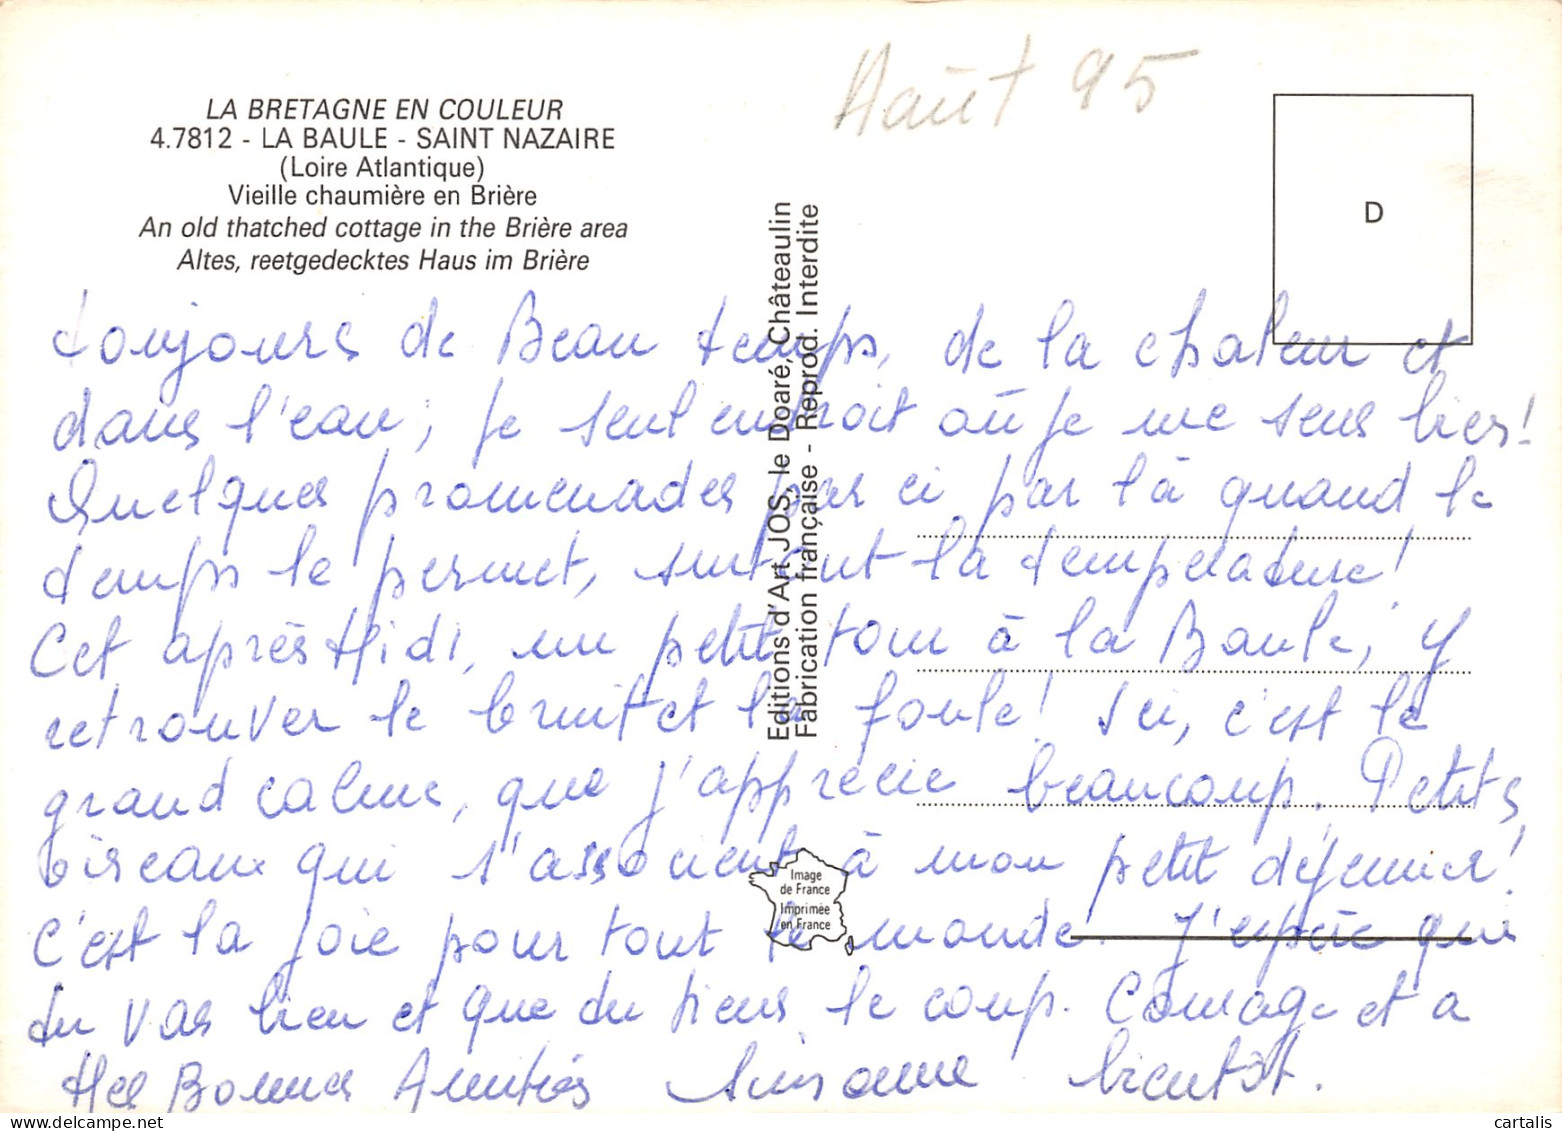 Août 95
LA BRETAGNE EN COULEUR
4.7812 - LA BAULE - SAINT NAZAIRE
(Loire Atlantique)
Vieille chaumière en Brière
An old thatched cottage in the Brière area
Altes, reetgedecktes Haus im Brière
D
Editions d'Art JOS, le Doaré, Châteaulin
Fabrication française - Reprod. Interdite
toujours de Beau temps, de la chaleur et
dans l'eau, le seul endroit où je me sens bien!
Quelques promenades par ci par là quand le
temps le permet, surtout la température!
Cet après Midi, un petit tour à la Baule, y
retrouver le bruit et la foule! Ici, c'est le
grand calme, que j'apprécie beaucoup. Petits
oiseaux qui s'associent à mon petit déjeuner!
C'est la joie pour tout le monde. J'espère que
tu vas bien et que tu tiens le coup. Courage et a
Mes Bonnes Amitiés Suzanne bientôt.
Image
de France
Imprimée
en France
cartalis